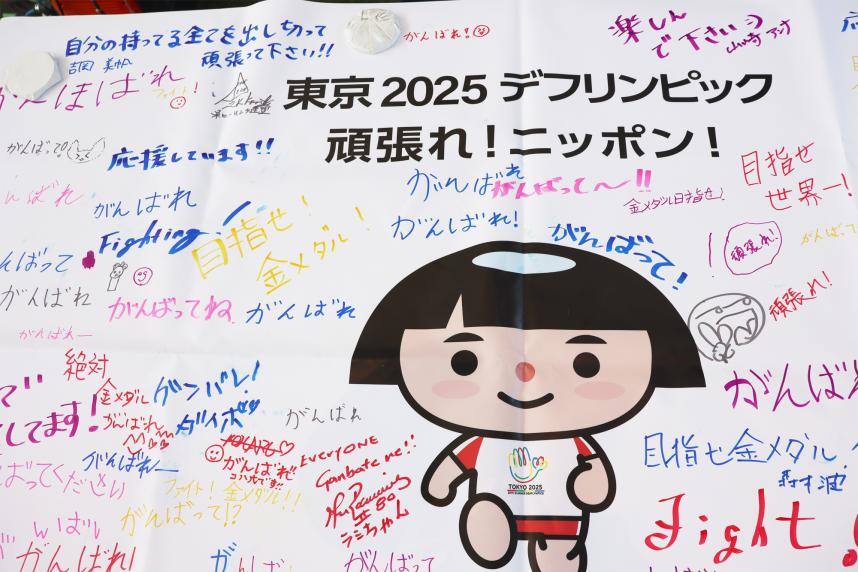 自分の持ってる全てを出し切って
頑張って下さい!!
がんばれ!
楽しん
で下さい
ファイト!
東京2025デフリンピック
頑張れ!ニッポン!
がんばって!
応援しています!!
がんばれ
がんばれ
がんばって〜!!
金メダル目指せ!
目指せ
世界一!
んばれ
がんばれ
Fighting!
目指せ!
金メダル!
がんばれ!
がんばって!
頑張れ!
がんばって
んばって
がんばれ
がんばってね
がんばれ
頑張れ!
がんばれー
絶対
金メダル
ガンバレ!
がんばれ
してます!
がんばれ
がんばれ
がんばれー
がんばれ!!
EVERYONE
Ganbate ne!!
ラミちゃん
TOKYO 2025
目指せ金メダル
ばってください
ファイト! 金メダル!!
がんばって!?
Fight!
がんばれ!
がんばって